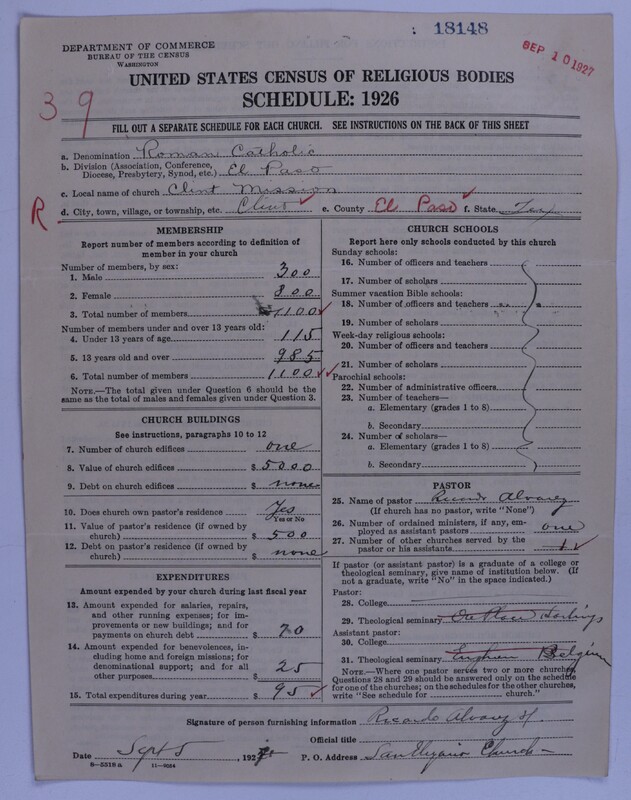 18148
SEP 10 1927
DEPARTMENT OF COMMERCE
BUREAU OF THE CENSUS
WASHINGTON
UNITED STATES CENSUS OF RELIGIOUS BODIES
SCHEDULE: 1926
39
FILL OUT A SEPARATE SCHEDULE FOR EACH CHURCH. SEE INSTRUCTIONS ON THE BACK OF THIS SHEET
a. Denomination Roman Catholic
b. Division (Association, Conference, Diocese, Presbytery, Synod, etc.) El Paso
c. Local name of church Clint Mission
R
d. City, town, village, or township, etc. Clint e. County El Paso f. State Tex
MEMBERSHIP
Report number of members according to definition of
member in your church
Number of members, by sex:
1. Male 300
2. Female 800
3. Total number of members 1100
Number of members under and over 13 years old:
4. Under 13 years of age 115
5. 13 years old and over 985
6. Total number of members 1100
NOTE.—The total given under Question 6 should be
same as the total of males and females given under Question 3.
CHURCH BUILDINGS
See instructions, paragraphs 10 to 12
7. Number of church edifices one
8. Value of church edifices $ 5000
9. Debt on church edifices $ none
10. Does church own pastor's residence? Yes
Yes or No
11. Value of pastor's residence (if owned by
church) $ 500
12. Debt on pastor's residence (if owned by
church) $ none
EXPENDITURES
Amount expended by your church during last fiscal year
13. Amount expended for salaries, repairs,
and other running expenses; for im-
provements or new buildings; and for
payments on church debt $ 70
14. Amount expended for benevolences, in-
cluding home and foreign missions; for
denominational support; and for all
other purposes $ 25
15. Total expenditures during year $ 95
CHURCH SCHOOLS
Report here only schools conducted by this church
Sunday schools:
16. Number of officers and teachers
17. Number of scholars
Summer vacation Bible schools:
18. Number of officers and teachers
19. Number of scholars
Week-day religious schools:
20. Number of officers and teachers
21. Number of scholars
Parochial schools:
22. Number of administrative officers
23. Number of teachers—
a. Elementary (grades 1 to 8)
b. Secondary
24. Number of scholars—
a. Elementary (grades 1 to 8)
b. Secondary
PASTOR
25. Name of pastor Ricardo Alvarez
(If church has no pastor, write "None")
26. Number of ordained ministers, if any, em-
ployed as assistant pastors one
27. Number of other churches served by the
pastor or his assistants 1
If pastor (or assistant pastor) is a graduate of a college or
theological seminary, give name of institution below. (If
not a graduate, write "No" in the space indicated.)
Pastor:
28. College
29. Theological seminary Ore Place Hastings
Assistant pastor:
30. College
31. Theological seminary Enghien Belgium
NOTE.—Where one pastor serves two or more churches,
Questions 28 and 29 should be answered only on the schedule
for one of the churches; on the schedules for the other churches,
write "See schedule for church."
Signature of person furnishing information Ricardo Alvarez
Official title
Date Sept 5, 1927 P. O. Address San Elizario Church
8—5318 a 11—9324